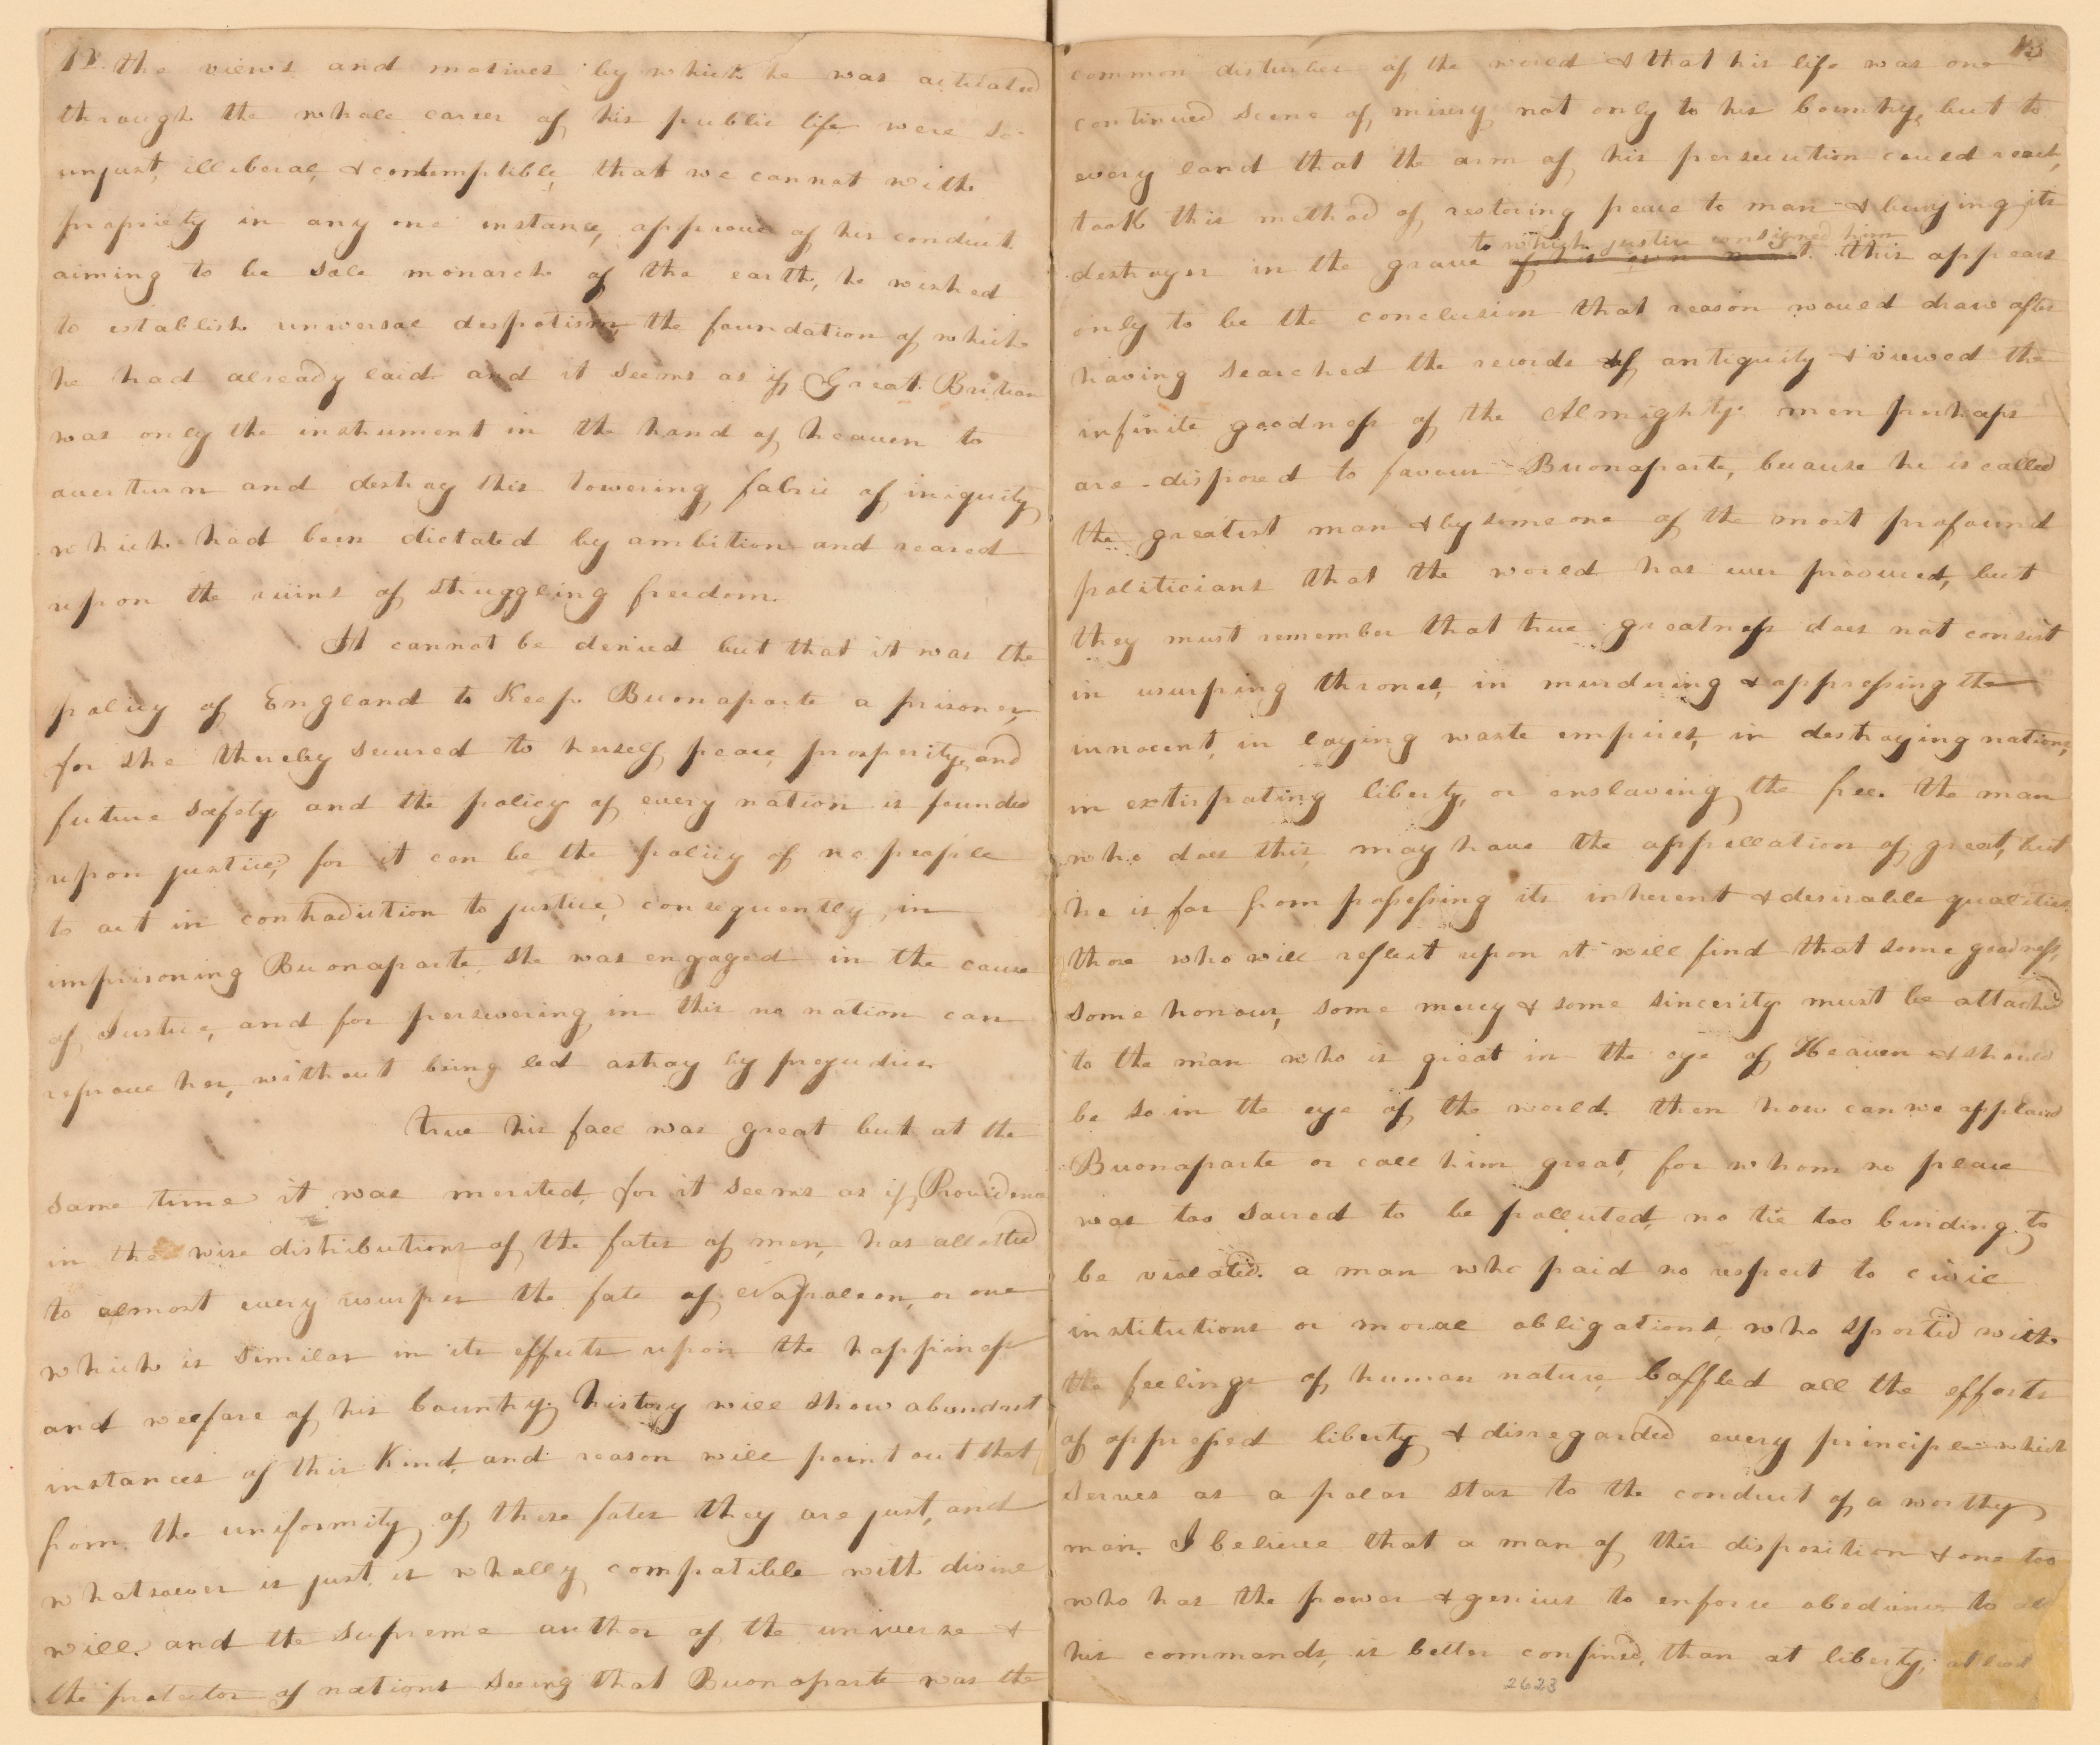 12. the views and motives by which he was actuated
through the whole career of his public life were so
unjust, illiberal, & contemptible, that we cannot with
propriety in any one instance, approve of his conduct
aiming to be sole monarch of the earth, he wished
to establish universal despotism, the foundation of which
he had already laid and it seems as if Great Britian
was only the instrument in the hand of heaven to
overturn and destroy this towering fabric of iniquity
which had been dictated by ambition and reared
upon the ruins of struggling freedom.
It cannot be denied but that it was the
policy of England to Keep Buonaparte a prisoner,
for she thereby secured to herself, peace, prosperity, and
future safety and the policy of every nation is founded
upon justice, for it can be the policy of no people
to act in contradiction to justice, consequently, in
imprisoning Buonaparte, she was engaged in the cause
of Justice, and for persevering in this no nation can
reprove her, without being led astray by prejudice.
True his fall was great but at the
same time it was merited, for it seems as if Providence
in the wise distributions of the fates of men, has allotted
to almost every usurper the fate of Napoleon, or one
which is similar in its effects upon the happiness
and welfare of his Country. history will show abundant
instances of this Kind, and reason will point out that
from the uniformity of these fates they are just, and
whatsoever is just, is wholly compatible with divine
will. and the supreme author of the universe &
the protector of nations seeing that Buonaparte was the
13
common disturber of the world & that his life was one
continued scene of misery not only to his Country, but to
every land that the arm of his persecution could reach,
took this method of restoring peace to man & burying its
to which justice consigned him
destroyer in the grave of his own merit. this appears
only to be the conclusion that reason would draw after
having searched the records of antiquity & viewed the
infinite goodness of the Almighty. men perhaps
are disposed to favour Buonaparte, because he is called
the greatest man & by some one of the most profound
politicians that the world has ever produced, but
they must remember that true greatness does not consist
in usurping thrones, in murdering & oppressing the
innocent, in laying waste empires, in destroying nations,
in extirpating liberty, or enslaving the free. The man
who does this, may have the appellation of great, but
he is far from possessing its inherent & desirable qualities.
those who will reflect upon it will find that some goodness,
some honour, some mercy & some sincerity must be attached
to the man who is great in the eye of Heaven & should
be so in the eye of the world. then how can we applaud
Buonaparte or call him great, for whom no place
was too sacred to be polluted, no tie too binding to
be violated. a man who paid no respect to civic
institutions or moral obligations, who sported with
the feelings of human nature, baffled all the efforts
of oppressed liberty & disregarded every principle which
serves as a polar star to the conduct of a worthy
man. I believe that a man of this disposition & one too
who has the power & genius to enforce obedience to all
his commands, is better confined, than at liberty, at least
2623